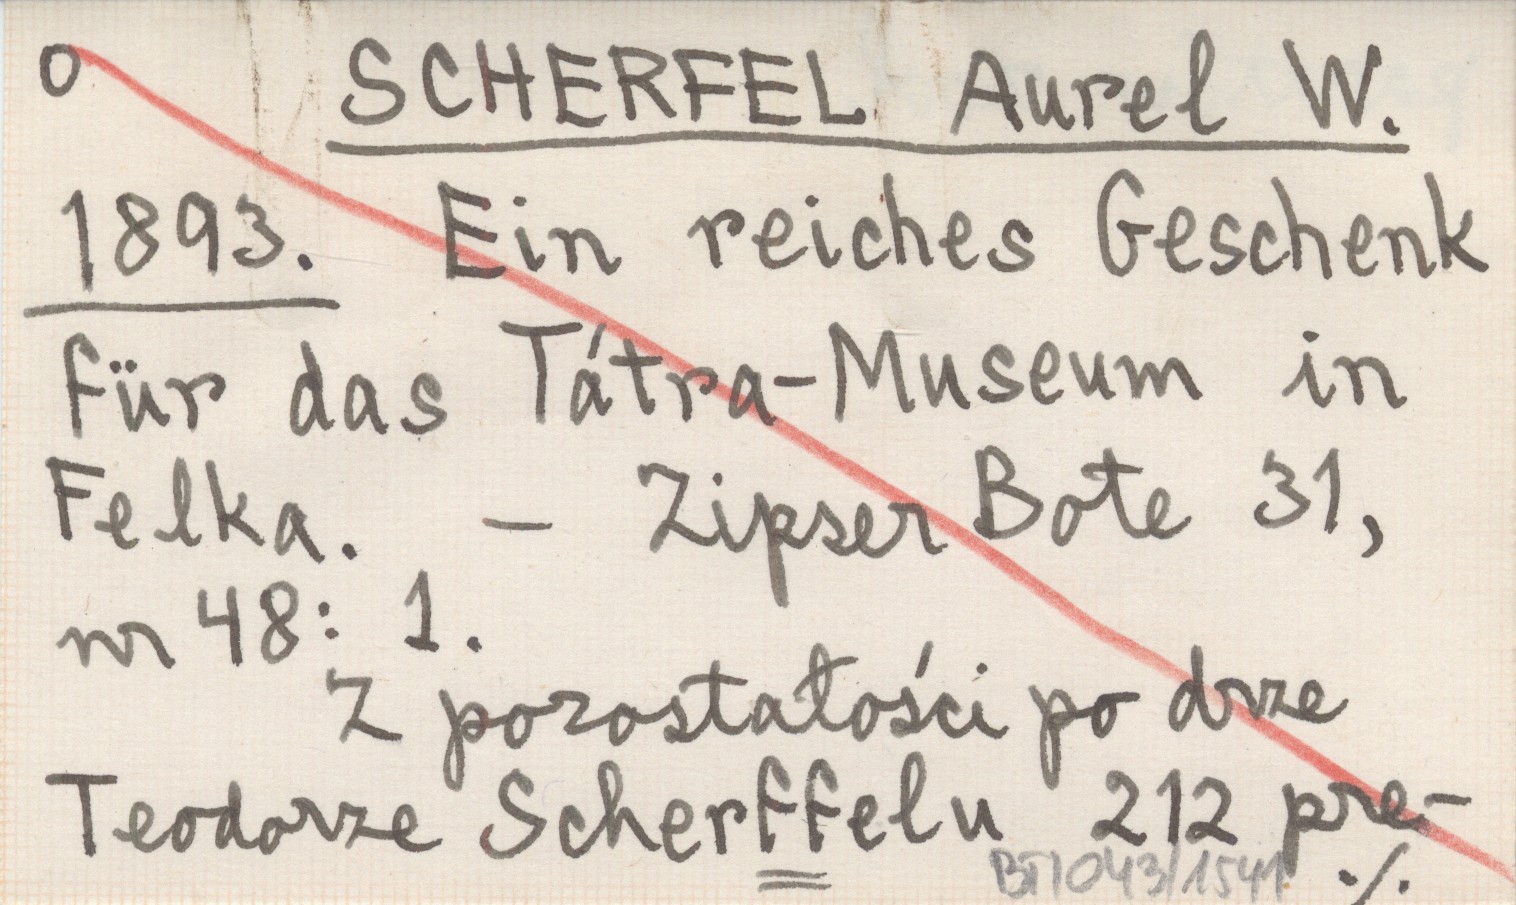 o SCHERFEL Aurel W.
1893. Ein reiches Geschenk
für das Tátra-Museum in
Felka. — Zipser Bote 31,
nr 48: 1.
Z pozostałości po drze
Teodorze Scherffelu 212 pre-
BT/043/1541 ./.